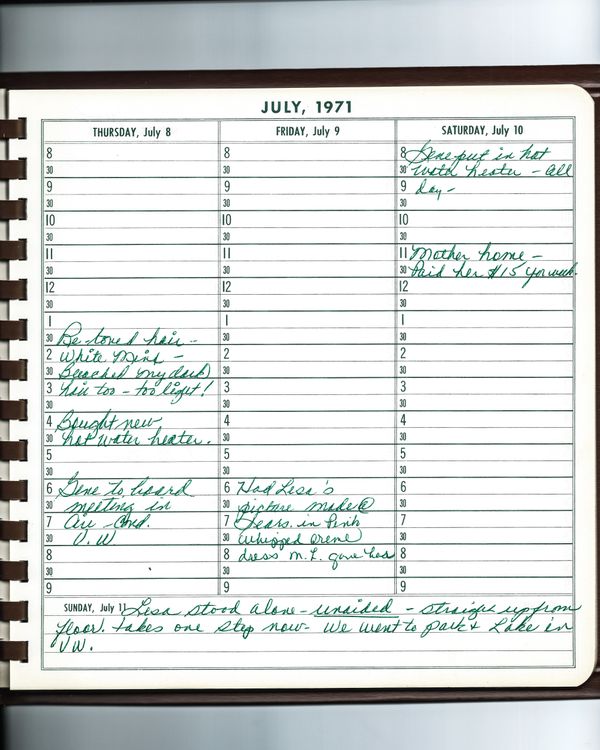 JULY, 1971
THURSDAY, July 8
8
30
9
30
10
30
11
30
12
30
1
30 Re-toned hair -
2 White Mink -
30 Beached my dark
3 hair too - too light!
30
4 Bought new
30 hot water heater.
5
30
6 Gene to board
30 meeting in
7 Air-Cond.
30 V.W
8
30
9
FRIDAY, July 9
8
30
9
30
10
30
11
30
12
30
1
30
2
30
3
30
4
30
5
30
6 Had Lesa's
30 picture made @
7 Sears in Pink
30 whipped creme
8 dress M.L. gave her
30
9
SATURDAY, July 10
8 Gene put in hot
30 water heater - all
9 day -
30
10
30
11 Mother home -
30 Paid her $15 for week.
12
30
1
30
2
30
3
30
4
30
5
30
6
30
7
30
8
30
9
SUNDAY, July 11 Lesa stood alone - unaided - straight up from
floor. takes one step now - We went to park & Lake in
VW.